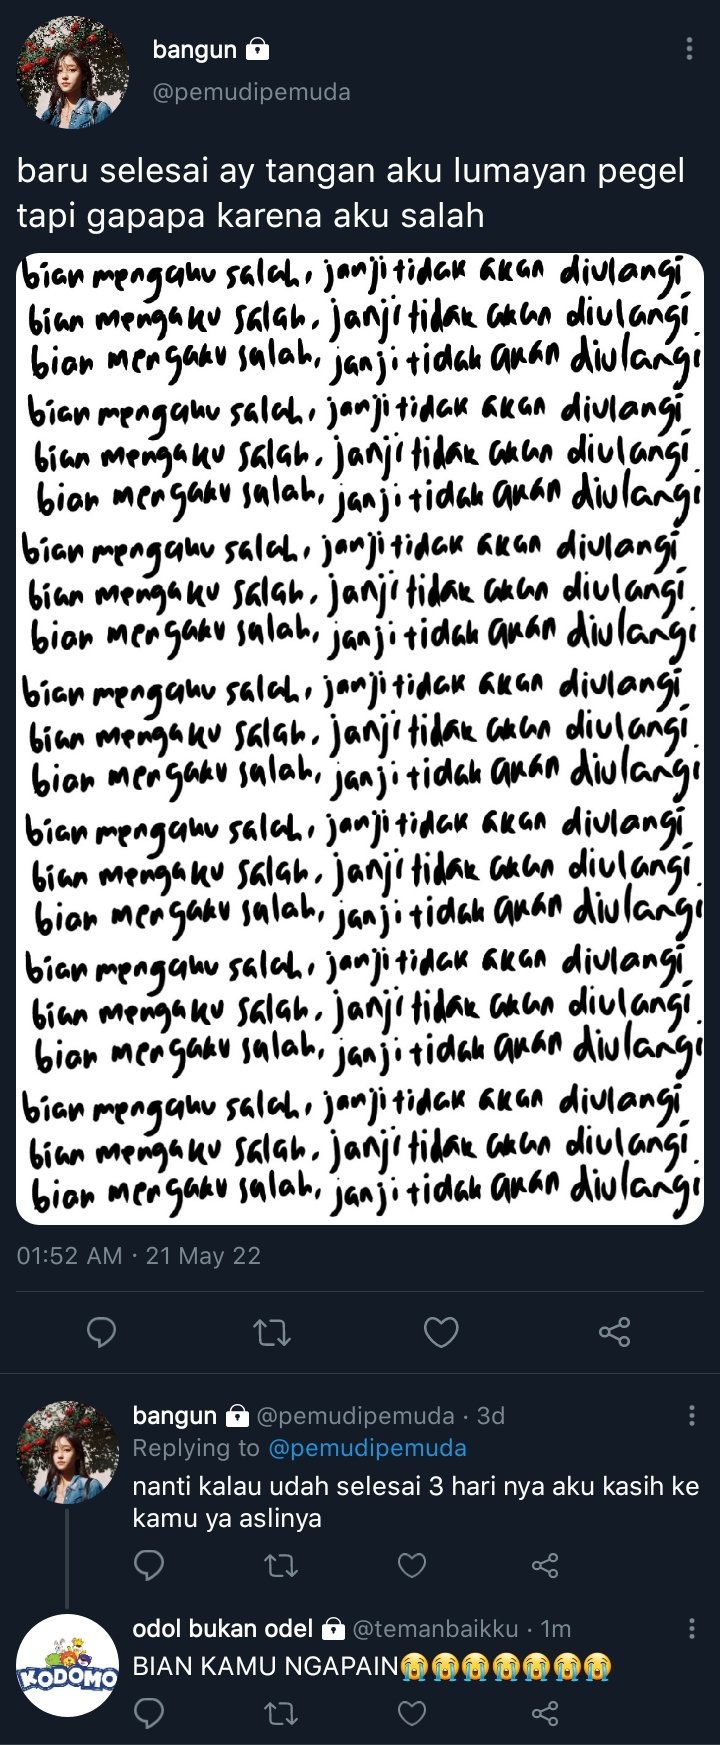 bangun
@pemudipemuda
baru selesai ay tangan aku lumayan pegel
tapi gapapa karena aku salah
bian mengaku salah, janji tidak akan diulangi
bian mengaku salah, janji tidak akan diulangi
bian mengaku salah, janji tidak akan diulangi
bian mengaku salah, janji tidak akan diulangi
bian mengaku salah, janji tidak akan diulangi
bian mengaku salah, janji tidak akan diulangi
bian mengaku salah, janji tidak akan diulangi
bian mengaku salah, janji tidak akan diulangi
bian mengaku salah, janji tidak akan diulangi
bian mengaku salah, janji tidak akan diulangi
bian mengaku salah, janji tidak akan diulangi
bian mengaku salah, janji tidak akan diulangi
bian mengaku salah, janji tidak akan diulangi
bian mengaku salah, janji tidak akan diulangi
bian mengaku salah, janji tidak akan diulangi
bian mengaku salah, janji tidak akan diulangi
bian mengaku salah, janji tidak akan diulangi
bian mengaku salah, janji tidak akan diulangi
bian mengaku salah, janji tidak akan diulangi
bian mengaku salah, janji tidak akan diulangi
bian mengaku salah, janji tidak akan diulangi
01:52 AM · 21 May 22
bangun @pemudipemuda · 3d
Replying to @pemudipemuda
nanti kalau udah selesai 3 hari nya aku kasih ke
kamu ya aslinya
odol bukan odel @temanbaikku · 1m
KODOMO
BIAN KAMU NGAPAIN😭😭😭😭😭😭😭